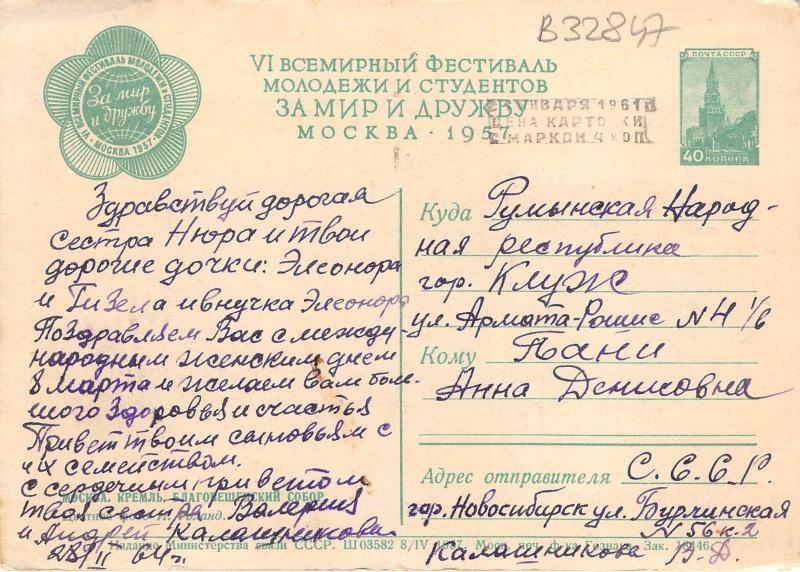 В32847
VI ВСЕМИРНЫЙ ФЕСТИВАЛЬ МОЛОДЕЖИ И СТУДЕНТОВ
МОСКВА · 1957
За мир
и дружбу
VI ВСЕМИРНЫЙ ФЕСТИВАЛЬ
МОЛОДЕЖИ И СТУДЕНТОВ
ЗА МИР И ДРУЖБУ
МОСКВА · 1957
ЯНВАРЯ 1961
ЦЕНА КАРТО КИ
С МАРКОЙ 4 КОП
ПОЧТА СССР
40 КОПЕЕК
Здравствуй дорогая
сестра Нюра и твои
дорогие дочки: Элеонора
и Гизела и внучка Элеонора
Поздравляем Вас с между-
народным женским днем
8 марта и желаем вам боль-
шого здоровья и счастья
Привет твоим сыновьям с
их семейством.
с сердечным приветом
твоя сестра Валерия
и Андрей Калашникова.
28/II 64 г.
МОСКВА. КРЕМЛЬ. БЛАГОВЕЩЕНСКИЙ СОБОР
Куда Румынская Народ-
ная республика
гор. Клуж
ул. Армата-Рошие N 4 1/6
Кому Пани
Анна Денисовна
Адрес отправителя С.С.С.Р.
гор. Новосибирск ул. Бурлинская
N 56 к. 2
Калашникова В.Д.
Издание Министерства связи СССР. Ш 03582 8/IV 1957. Моск. печ. ф-ка Гознака. Зак. 1 46.